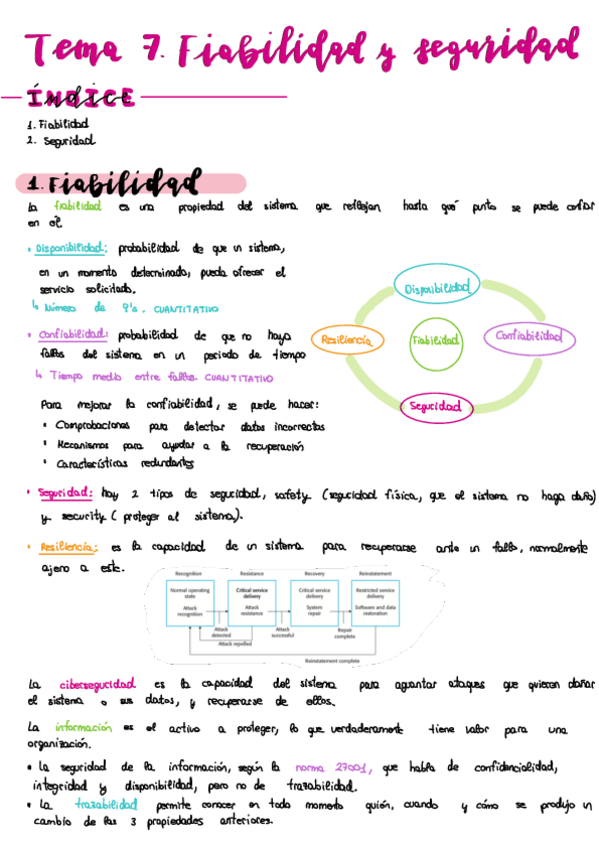 Tema 7. Fiabilidad y seguridad
ÍNDICE
1. Fiabilidad
2. Seguridad
1. Fiabilidad
La fiabilidad es una propiedad del sistema que reflejan hasta qué punto se puede confiar
en él.
• Disponibilidad: probabilidad de que un sistema,
en un momento determinado, pueda ofrecer el
servicio solicitado.
↳ Número de 9's. CUANTITATIVO
• Confiabilidad: probabilidad de que no haya
fallos del sistema en un periodo de tiempo
↳ Tiempo medio entre fallos. CUANTITATIVO
Disponibilidad
Resiliencia
Fiabilidad
Confiabilidad
Seguridad
Para mejorar la confiabilidad, se puede hacer:
• Comprobaciones para detectar datos incorrectos
• Mecanismos para ayudar a la recuperación
• Características redundantes
• Seguridad: hay 2 tipos de seguridad, safety (seguridad física, que el sistema no haga daño)
y security (proteger al sistema).
• Resiliencia: es la capacidad de un sistema para recuperarse ante un fallo, normalmente
ajeno a este.
Recognition Resistance Recovery Reinstatement
Normal operating state
Attack recognition
Critical service delivery
Attack resistance
Critical service delivery
System repair
Restricted service delivery
Software and data restoration
Attack detected
Attack successful
Repair complete
Attack repelled
Reinstatement complete
La ciberseguridad es la capacidad del sistema para aguantar ataques que quieran dañar
el sistema o sus datos, y recuperarse de ellos.
La información es el activo a proteger, lo que verdaderamente tiene valor para una
organización.
• La seguridad de la información, según la norma 27001, que habla de confidencialidad,
integridad y disponibilidad, pero no de trazabilidad.
• La trazabilidad permite conocer en todo momento quién, cuando y cómo se produjo un
cambio de las 3 propiedades anteriores.